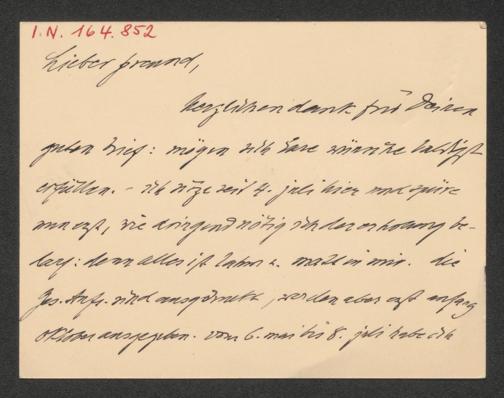 I.N. 164.852
Lieber freund,
herzlichen dank für Deinen
guten brief: mögen sich Eure wünsche baldigst
erfüllen. – ich sitze seit 4. juli hier und spüre
nun erst, wie dringend nötig ich der erholung be-
darf: denn alles ist lahm u. matt in mir. die
Ges. Aufs. sind ausgedruckt, werden aber erst anfang
oktober ausgegeben. vom 6. mai bis 8. juli habe ich